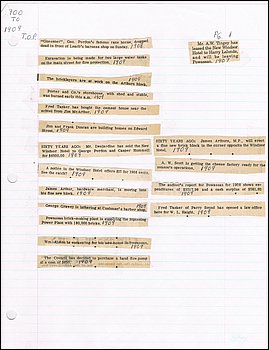 700
TO
1909
T.O.P.
Pg 1
"Governor", Geo. Purdon's famous race horse, dropped
dead in front of Leach's harness shop on Sunday. 1908
Excavation is being made for two large water tanks
on the main street for fire protection. 1909
The bricklayers are at work on the Arthurs block. 1909
Porter and Co.'s storehouse, with shed and stable,
was burned early this a.m. 1909
Fred Tasker has bought the cement house near the
school from Jim McArthur. 1909
Jim and Frank Duncan are building homes on Edward
Street. 1909
SIXTY YEARS AGO: Mr. Deuke-Doe has sold the New
Windsor Hotel to George Purdon and Casper Hummell
for $6500.00 1909
A notice in the Windsor Hotel offers $11 for 1908 cents.
See the cards? 1909
James Arthur, hardware merchant, is moving into
his fine new block. 1909
George Gravey is barbering at Cushman's barber shop. 1909
Powassan brick-making plant is supplying the Squaring
Power Plant with 160,000 bricks. 1909
Wm. Alston is excavating for his new house in Powassan.
1909
The Council has decided to purchase a hand fire pump
at a cost of $650. 1909
Mr. A.W. Tingey has
leased the New Windsor
Hotel to Harry Lalonde,
and will be leaving
Powassan. 1909
SIXTY YEARS AGO: James Arthurs, M.P., will erect
a fine new brick block in the corner opposite the Windsor
Hotel. 1909
A. W. Scott is getting the cheese factory ready for the
season's operations. 1909
The auditor's report for Powassan for 1908 shows ex-
penditures of and a cash surplus of
1909
Fred Tasker of Parry Sound has opened a law office
here for W. L. Haight. 1909